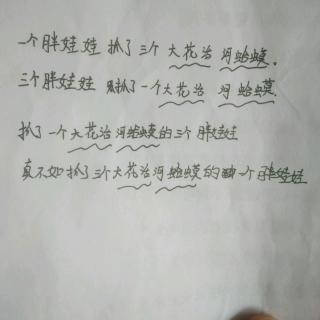 一个胖娃娃抓了三个大花治河蛤蟆.
三个胖娃娃只抓了一个大花治河蛤蟆.
抓了一个大花治河蛤蟆的三个胖娃娃
真不如抓了三个大花治河蛤蟆的一个胖娃娃